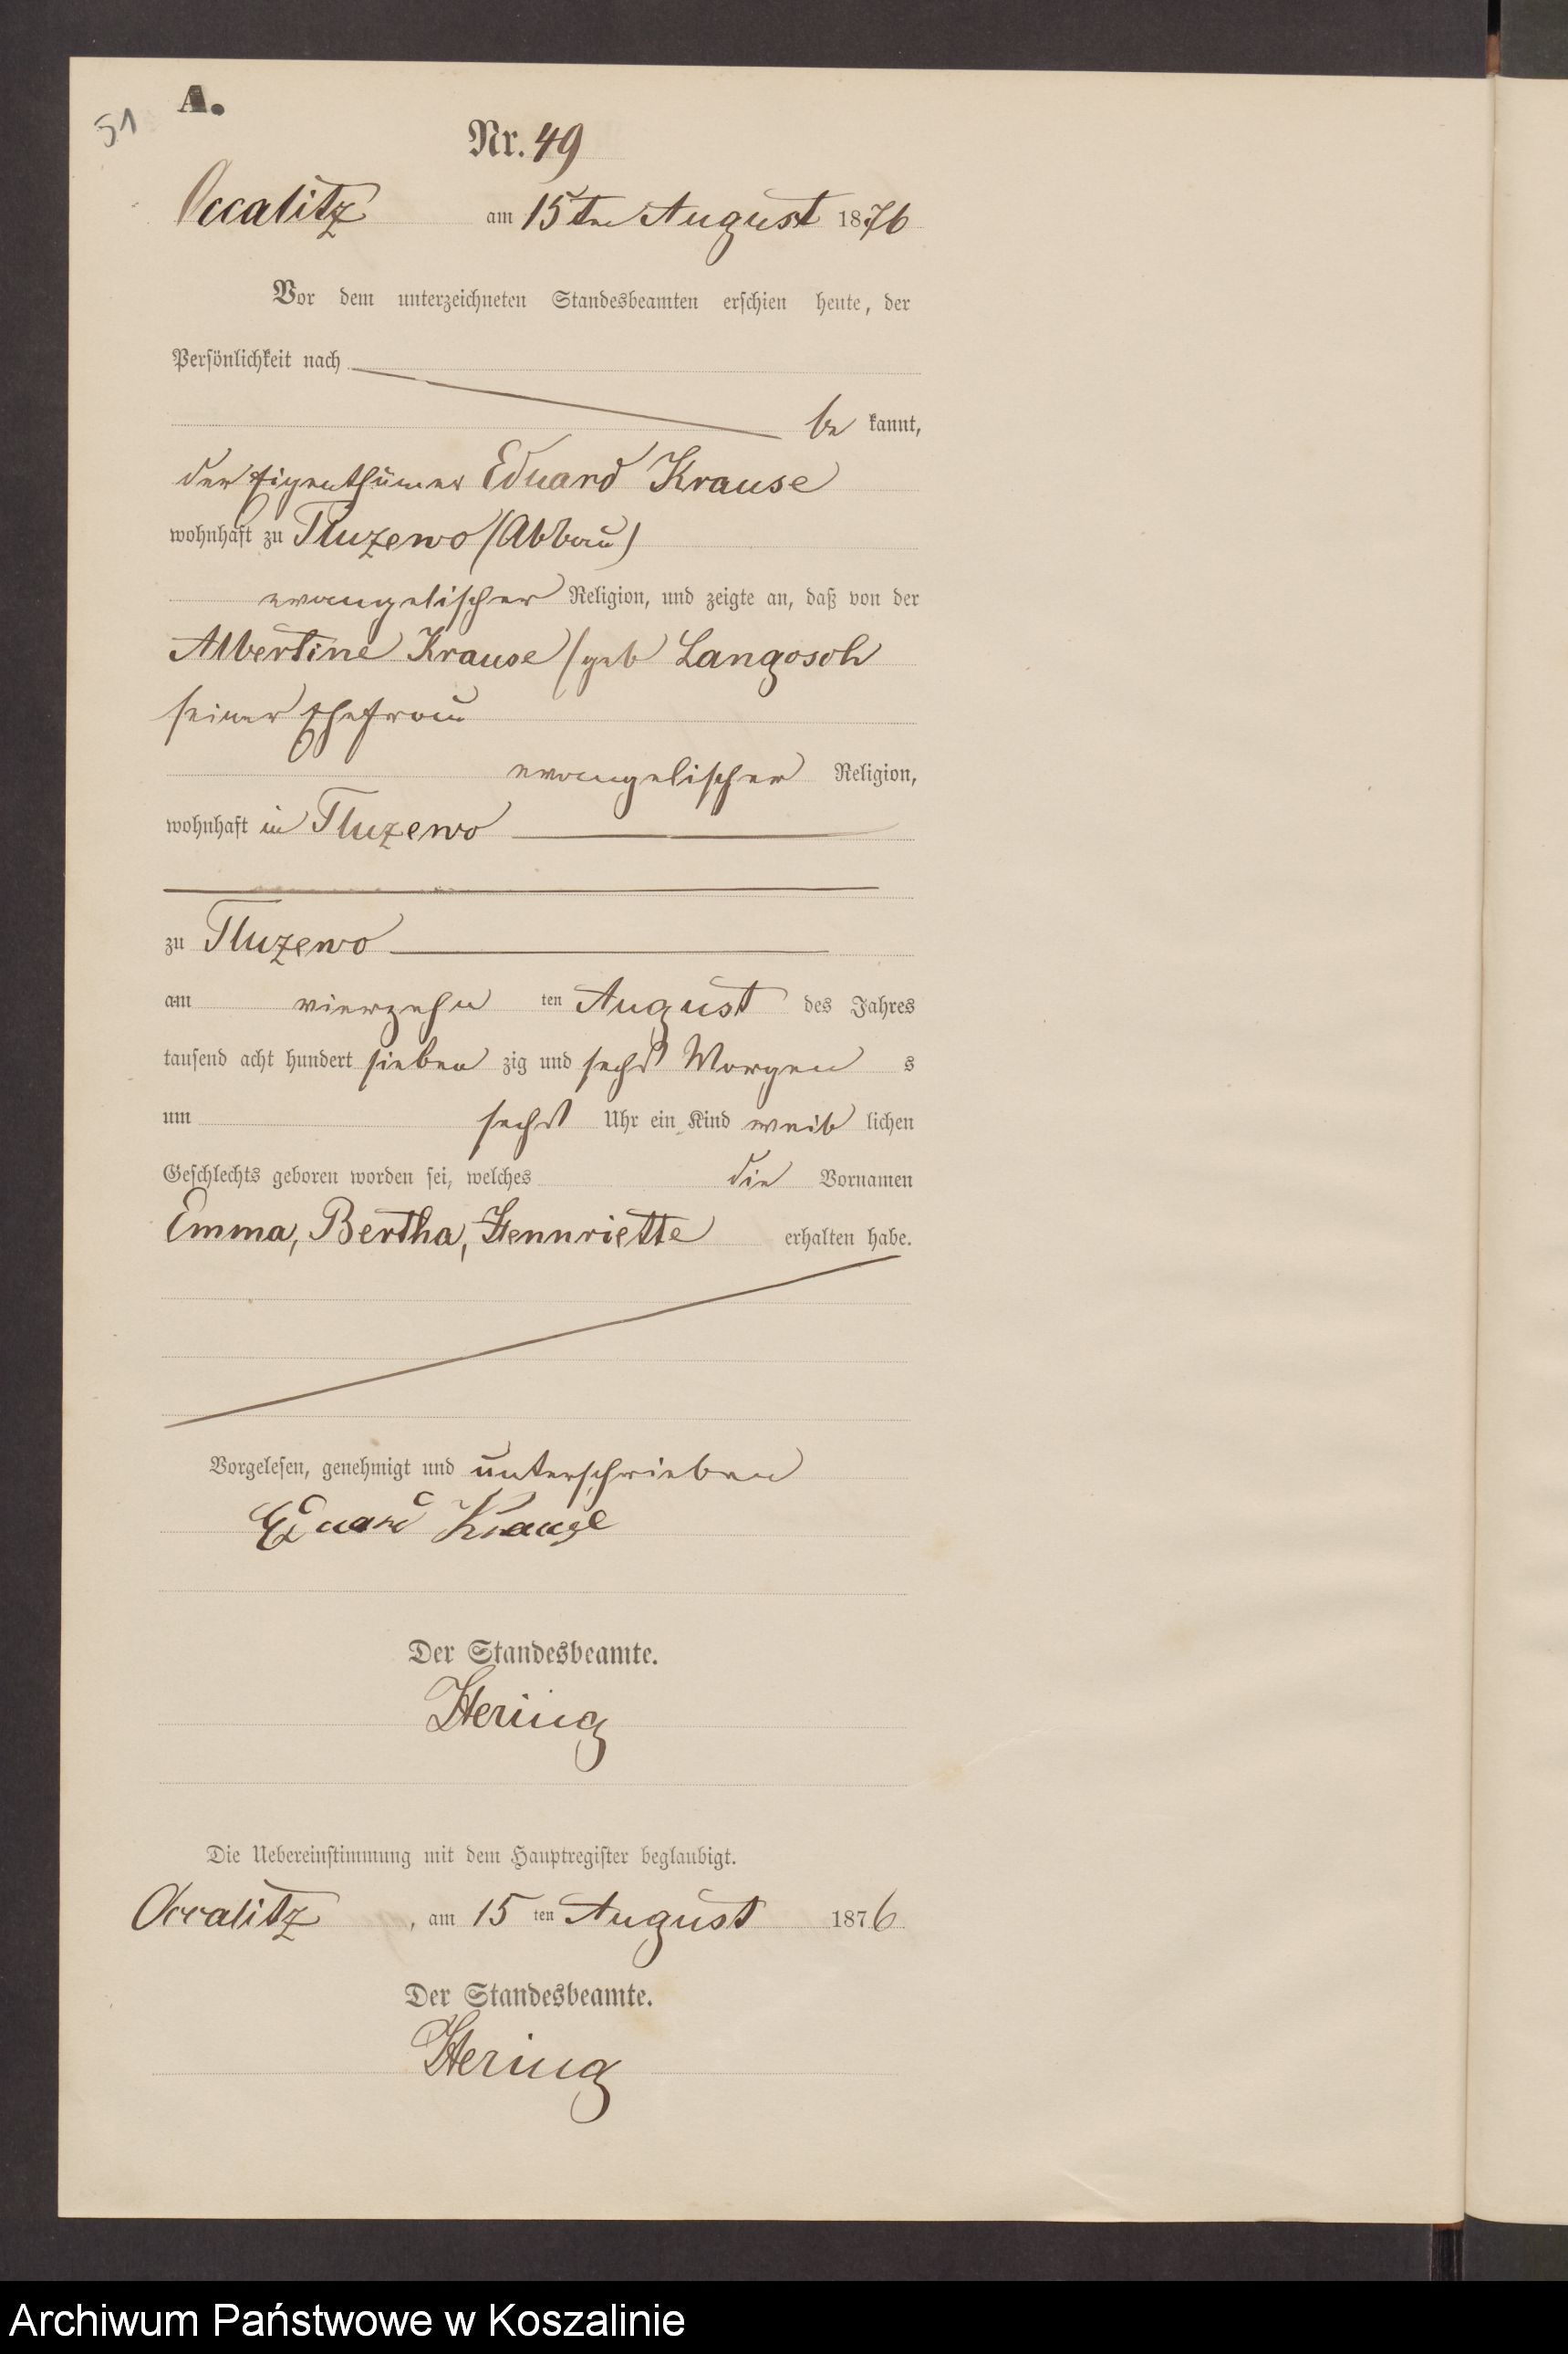 A.
51
Nr. 49
Occalitz am 15ten August 1876
Vor dem unterzeichneten Standesbeamten erschien heute, der
Persönlichkeit nach
be kannt,
der Eigenthümer Eduard Krause
wohnhaft zu Tluzewo (Abbau)
evangelischer Religion, und zeigte an, daß von der
Albertine Krause (geb Langosch
seiner Ehefrau
evangelischer Religion,
wohnhaft in Tluzewo
zu Tluzewo
am vierzehn ten August des Jahres
tausend acht hundert sieben zig und sechs Morgen s
um sechs Uhr ein Kind weib lichen
Geschlechts geboren worden sei, welches die Vornamen
Emma, Bertha, Hennriette erhalten habe.
Vorgelesen, genehmigt und unterschrieben
Eduard Krause
Der Standesbeamte.
Hering
Die Uebereinstimmung mit dem Hauptregister beglaubigt.
Occalitz, am 15 ten August 1876
Der Standesbeamte.
Hering
Archiwum Państwowe w Koszalinie